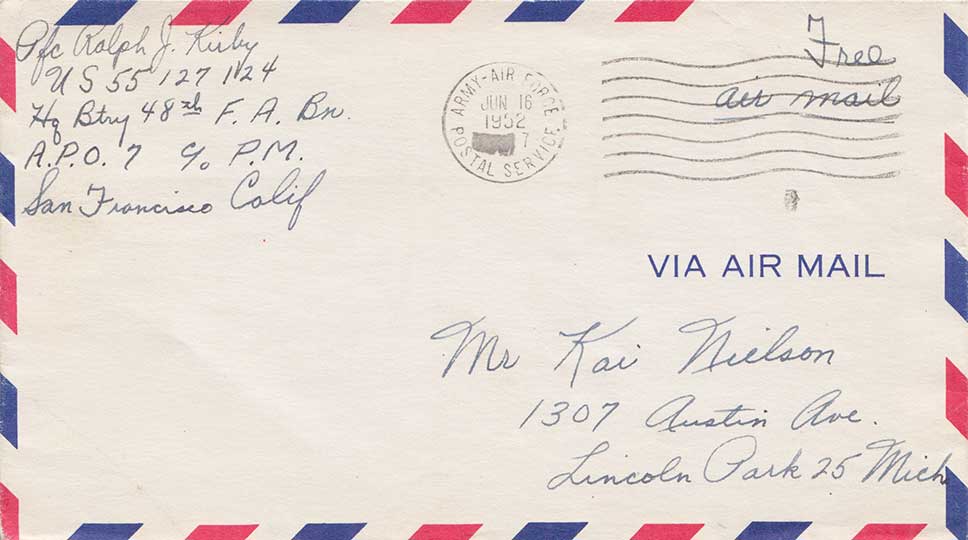 Pfc Ralph J. Kirby
US 55 127 124
Hq Btry 48th F. A. Bn.
A.P.O. 7 c/o P.M.
San Francisco Calif
ARMY-AIR FORCE
JUN 16
1952
7
POSTAL SERVICE
Free
air mail
VIA AIR MAIL
Mr Kai Nielson
1307 Austin Ave.
Lincoln Park 25 Mich